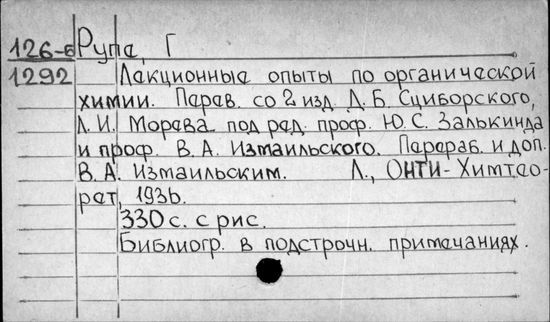 126-б Рупе, Г
1292 Лекционные опыты по органической
химии. Перев. со 2 изд. Д. Б. Сциборского,
Л. И. Морева под ред. проф. Ю. С. Залькинда
и проф. В. А. Измаильского. Перераб. и доп.
В. А. Измаильским. Л., ОНТИ-Химтео-
рет, 1936.
330 с. с рис.
Библиогр. в подстрочн. примечаниях.